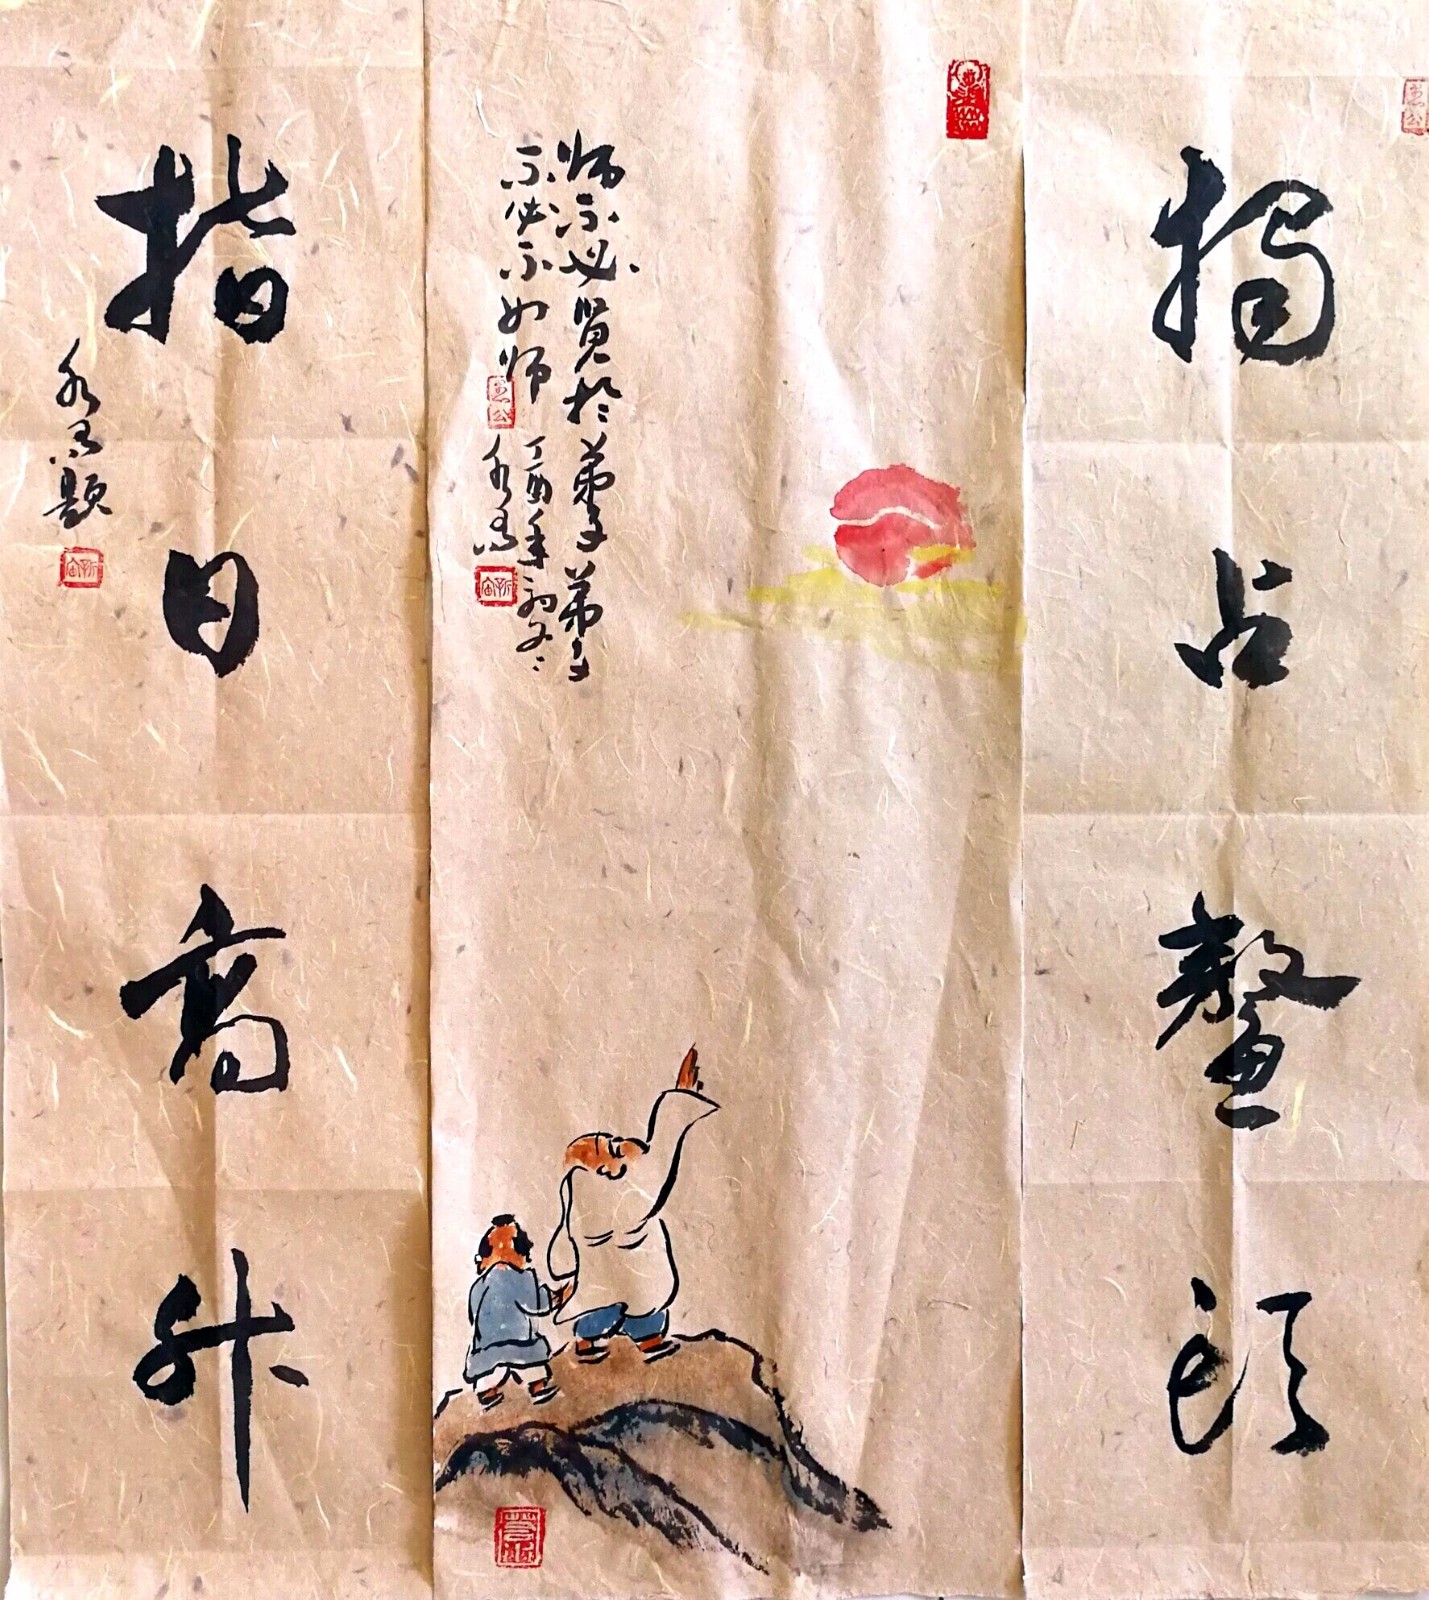 独占鳌头
师不必贤于弟子弟子
不必不如师
丁酉年初冬
指日高升
题